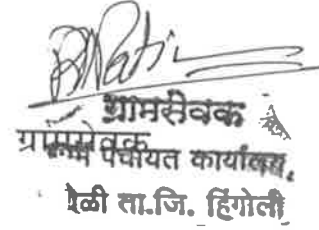 ग्रामसेवक
ग्रामसेवक
पंचायत कार्यालय,
ता.जि. हिंगोली